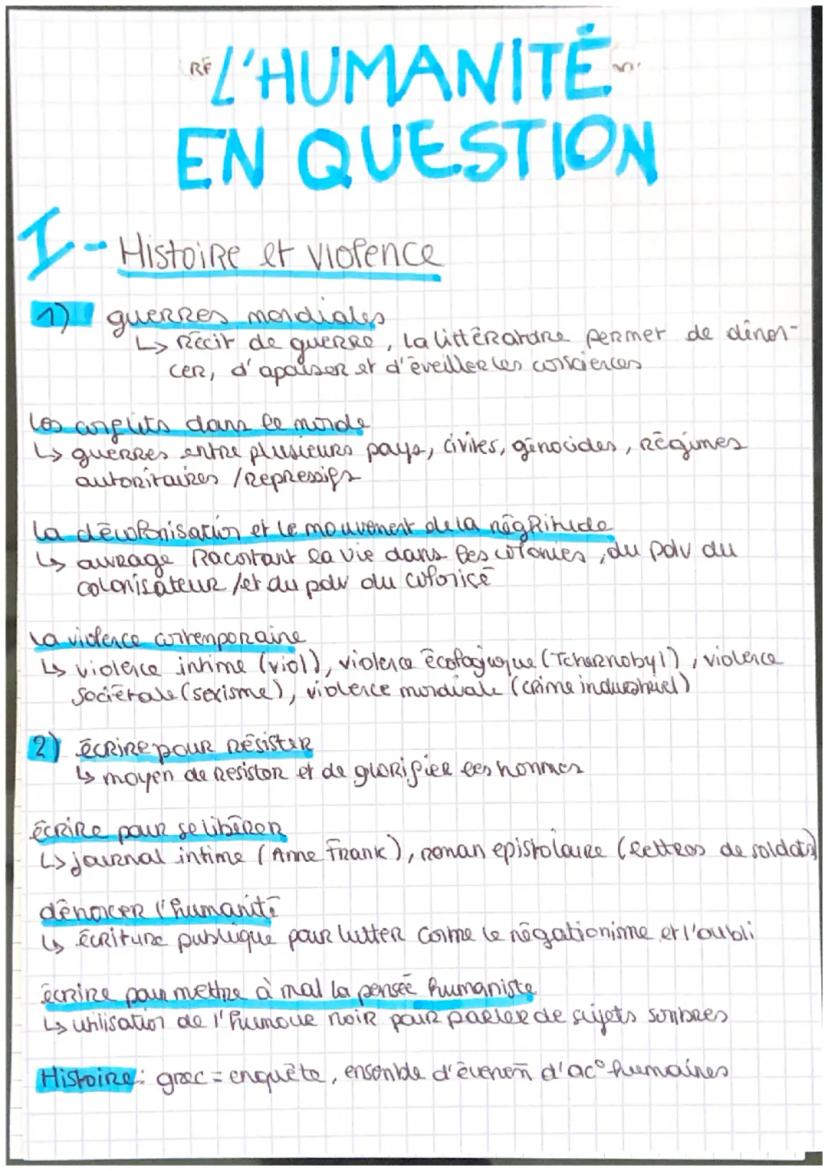 L'HUMANITÉ
EN QUESTION
I - Histoire et violence
1) guerres mondiales
↳ Récit de guerre, la littérature permet de dénon-
cer, d'apaiser et d'éveiller les consciences
les conflits dans le monde
↳ guerres entre plusieurs pays, civiles, génocides, Régimes
autoritaires / Repressifs
la décolonisation et le mouvement de la négritude
↳ ouvrage Racontant la vie dans les colonies, du pdv du
colonisateur / et du pdv du colonisé
la violence contemporaine
↳ violence intime (viol), violence écologique (Tchernobyl), violence
sociétale (sexisme), violence mondiale (crime industriel)
2) écrire pour résister
↳ moyen de resister et de glorifier les hommes
écrire pour se libérer
↳ journal intime (Anne Frank), roman epistolaire (lettres de soldats)
dénoncer l'humanité
↳ écriture publique pour lutter contre le négationisme et l'oubli
écrire pour mettre à mal la pensée humaniste
↳ utilisation de l'humour noir pour parler de sujets sombres
Histoire : grec = enquête, ensemble d'événem d'ac° humaines